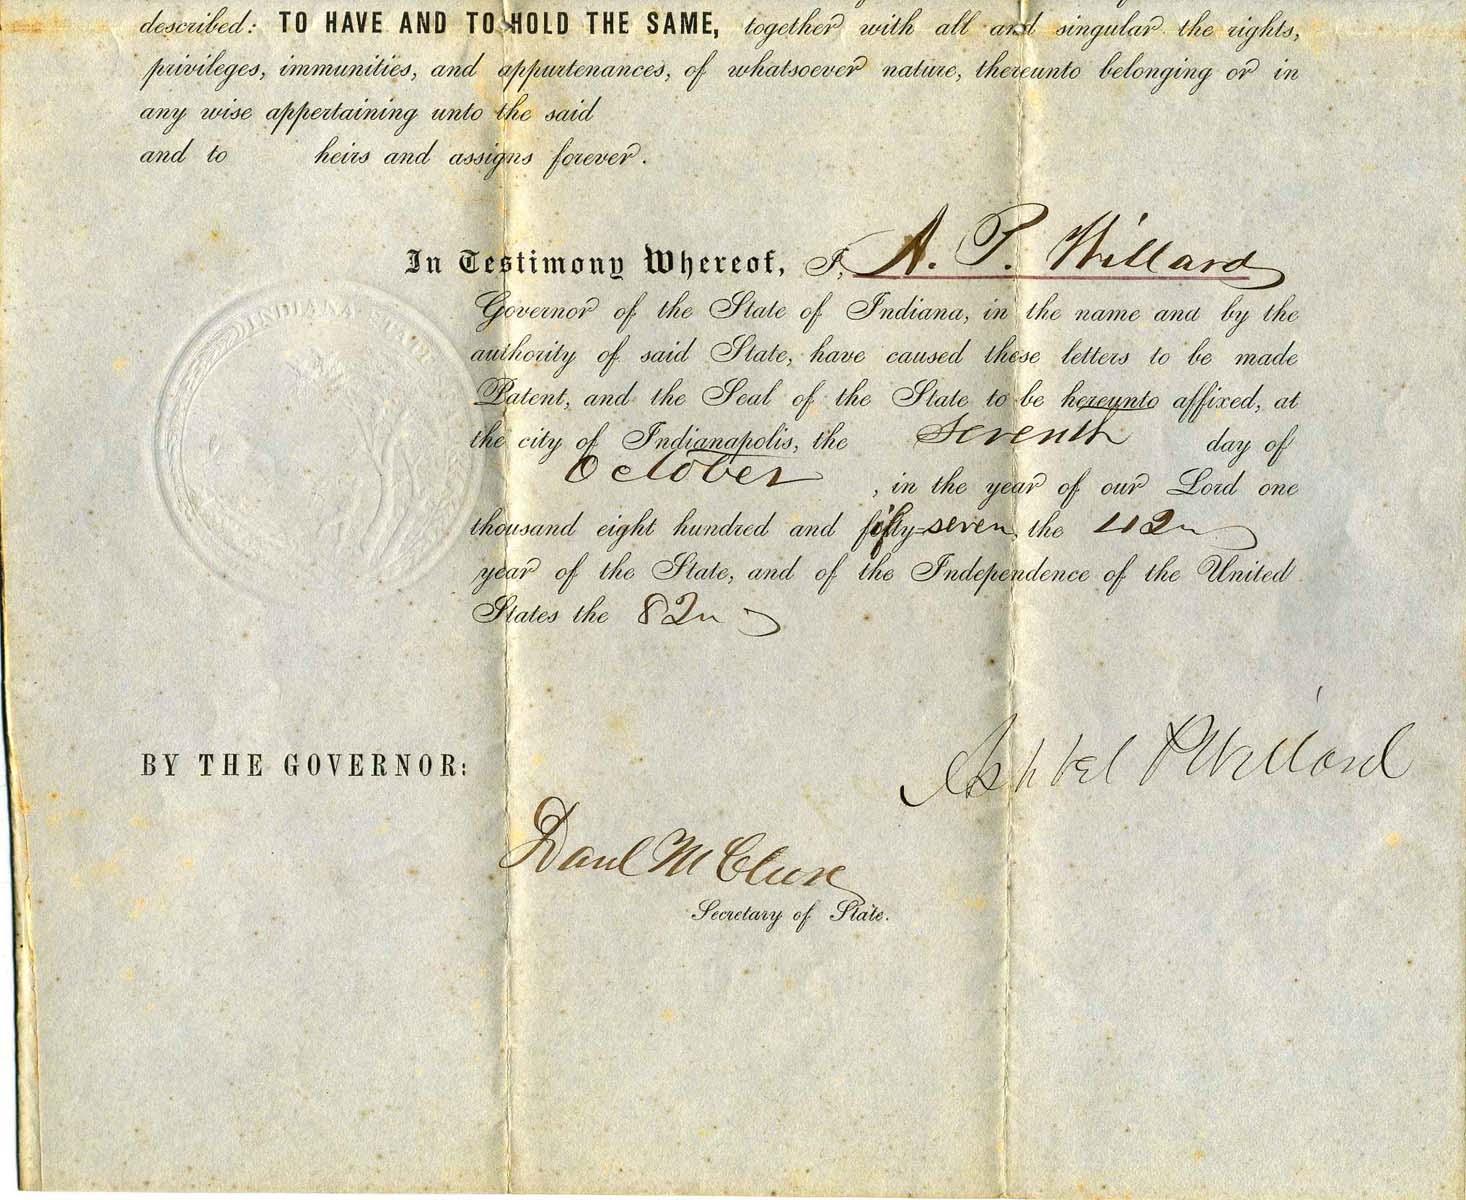 described: TO HAVE AND TO HOLD THE SAME, together with all and singular the rights,
privileges, immunities, and appurtenances, of whatsoever nature, thereunto belonging or in
any wise appertaining unto the said
and to heirs and assigns forever.
In Testimony Whereof, I, A. P. Willard
INDIANA STATE
Governor of the State of Indiana, in the name and by the
authority of said State, have caused these letters to be made
Patent, and the Seal of the State to be hereunto affixed, at
the city of Indianapolis, the seventh day of
October , in the year of our Lord one
thousand eight hundred and fifty-seven, the 42n
year of the State, and of the Independence of the United
States the 82n
BY THE GOVERNOR:
Ashbel P Willard
Danl McClure
Secretary of State.